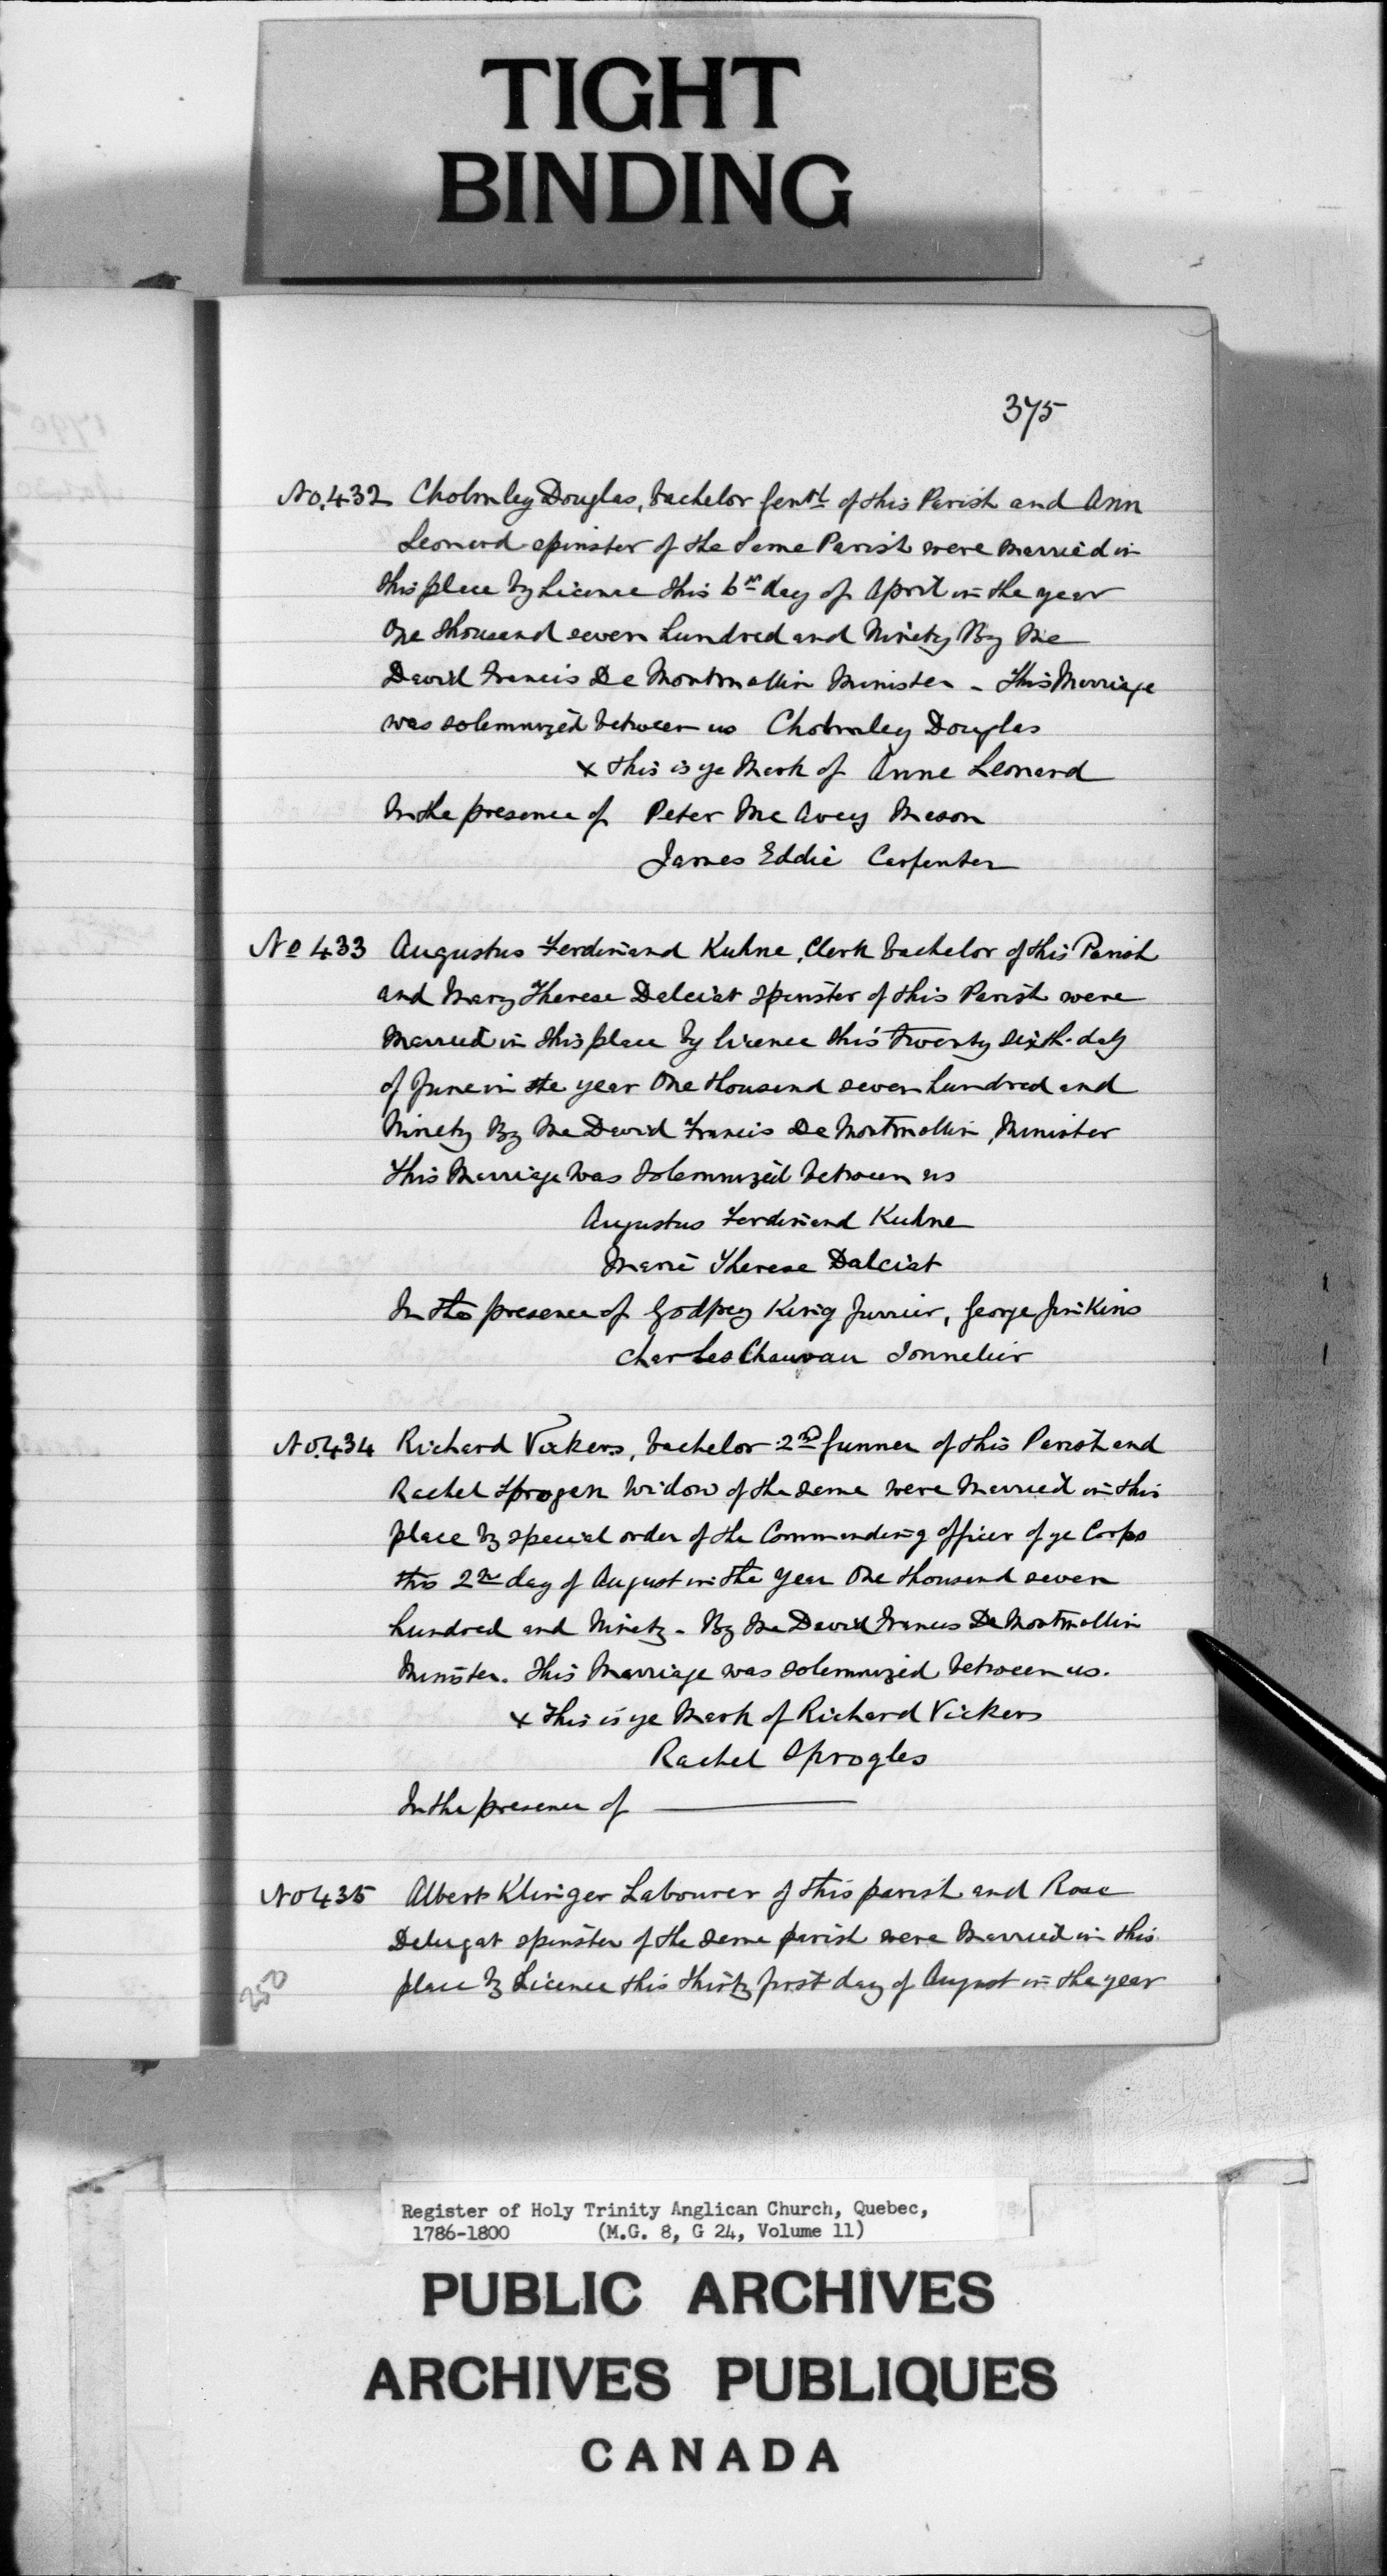 TIGHT
BINDING
375
No. 432 Cholmley Douglas, bachelor Gentl of this Parish and Ann
Leonard spinster of the Same Parish were married in
this place by Licence this 6th day of April in the year
One thousand seven hundred and Ninety By Me
David Francis De Montmollin Minister - This Marriage
was solemnized between us Cholmley Douglas
x this is ye Mark of Anne Leonard
In the presence of Peter Mc Avey Mason
James Eddie Carpenter
No 433 Augustus Ferdinand Kuhne, Clerk bachelor of this Parish
and Mary Therese Dalciat spinster of this Parish were
Married in this place by licence this twenty sixth day
of June in the year One thousand seven hundred and
Ninety By Me David Francis De Montmollin, Minister
This Marriage was Solemnized between us
Augustus Ferdinand Kuhne
Marie Therese Dalciat
In the presence of Godfrey King furrier, George Jinkins
Charles Chauvau Tonnelier
No. 434 Richard Vickers, bachelor 2nd Gunner of this Parish and
Rachel Widow of the same were Married in this
place by special order of the Commanding officer of ye Corps
this 2nd day of August in the year One thousand seven
hundred and Ninety - By Me David Francis De Montmollin
Minister. This Marriage was solemnized between us.
x This is ye Mark of Richard Vickers
Rachel Sprogles
In the presence of
No 435 Albert Klinger Labourer of this parish and Rose
spinster of the same parish were Married in this
place by Licence this thirty first day of August in the year
250
Register of Holy Trinity Anglican Church, Quebec,
1786-1800 (M.G. 8, G 24, Volume 11)
PUBLIC ARCHIVES
ARCHIVES PUBLIQUES
CANADA